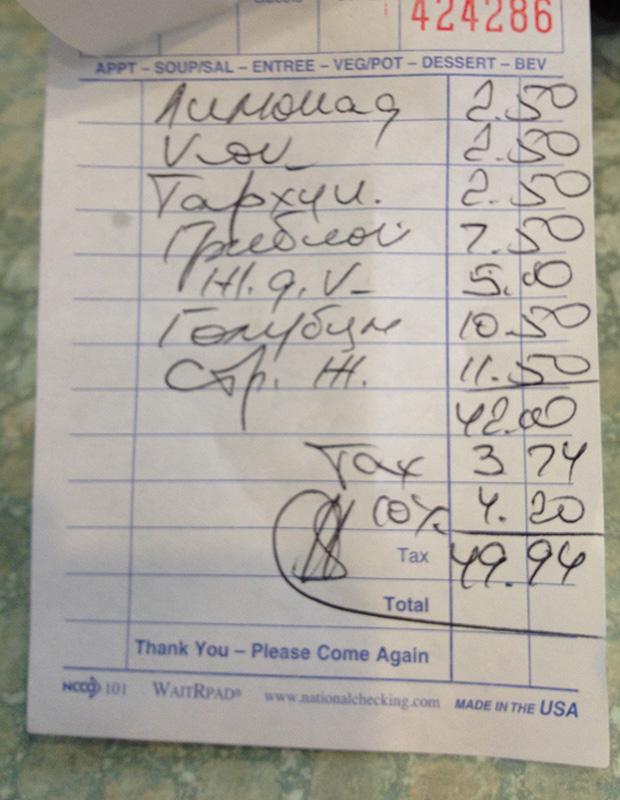 424286
APPT – SOUP/SAL – ENTREE – VEG/POT – DESSERT – BEV
Лимонад 2.50
2.50
Тархун. 2.50
Грибной 7.50
5.00
Голубцы 10.50
Стр. Ж. 11.50
42.00
Tax 3 74
10% 4.20
$ Tax 49.94
Total
Thank You – Please Come Again
NCCO 101 WAITRPAD® www.nationalchecking.com MADE IN THE USA